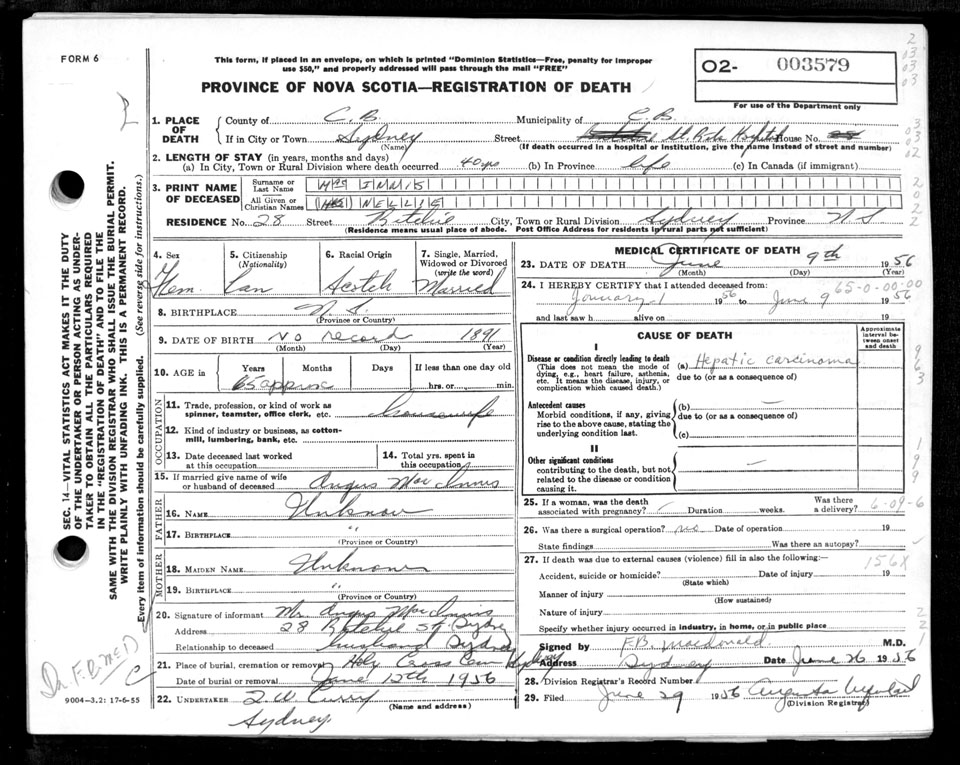 FORM 6
This form, if placed in an envelope, on which is printed "Dominion Statistics—Free, penalty for improper
use $50," and properly addressed will pass through the mail "FREE"
PROVINCE OF NOVA SCOTIA—REGISTRATION OF DEATH
02- 003579
For use of the Department only
1. PLACE OF DEATH
County of C. B. Municipality of C. B.
If in City or Town Sydney Street House No.
(Name) (If death occurred in a hospital or institution, give the name instead of street and number)
2. LENGTH OF STAY (in years, months and days)
(a) In City, Town or Rural Division where death occurred 40 yrs (b) In Province life (c) In Canada (if immigrant)
3. PRINT NAME OF DECEASED
Surname or Last Name MacINNIS
All Given or Christian Names NELLIE
RESIDENCE No. 28 Street Ritchie City, Town or Rural Division Sydney Province N S
(Residence means usual place of abode. Post Office Address for residents in rural parts not sufficient)
4. Sex Fem.
5. Citizenship (Nationality) Can
6. Racial Origin Scotch
7. Single, Married, Widowed or Divorced (write the word) Married
8. BIRTHPLACE N. S.
(Province or Country)
9. DATE OF BIRTH No record 1891
(Month) (Day) (Year)
10. AGE in Years Months Days If less than one day old
65 approx hrs. or min.
OCCUPATION
11. Trade, profession, or kind of work as spinner, teamster, office clerk, etc. housewife
12. Kind of industry or business, as cotton-mill, lumbering, bank, etc.
13. Date deceased last worked at this occupation
14. Total yrs. spent in this occupation
15. If married give name of wife or husband of deceased Angus MacInnis
FATHER
16. NAME Unknown
17. BIRTHPLACE "
(Province or Country)
MOTHER
18. MAIDEN NAME Unknown
19. BIRTHPLACE "
(Province or Country)
20. Signature of informant Mr. Angus MacInnis
Address 28 Ritchie St. Sydney
Relationship to deceased husband Sydney
21. Place of burial, cremation or removal Holy Cross Cem Sydney
Date of burial or removal June 12th 1956
22. UNDERTAKER T. W. Curry
(Name and address)
Sydney
MEDICAL CERTIFICATE OF DEATH
23. DATE OF DEATH June 9th 1956
(Month) (Day) (Year)
24. I HEREBY CERTIFY that I attended deceased from: 65-0-00-00
January 1 1956 to June 9 1956
and last saw h alive on 19
CAUSE OF DEATH
Approximate interval between onset and death
I
Disease or condition directly leading to death (a) Hepatic carcinoma
(This does not mean the mode of dying, e.g., heart failure, asthenia, etc. It means the disease, injury, or complication which caused death.)
due to (or as a consequence of)
Antecedent causes (b) —
Morbid conditions, if any, giving rise to the above cause, stating the underlying condition last.
due to (or as a consequence of)
(c)
II
Other significant conditions —
contributing to the death, but not related to the disease or condition causing it.
25. If a woman, was the death associated with pregnancy? Duration weeks. Was there a delivery? 6-09-6
26. Was there a surgical operation? no Date of operation 19
State findings Was there an autopsy?
27. If death was due to external causes (violence) fill in also the following:— 156X
Accident, suicide or homicide? Date of injury 19
(State which)
Manner of injury
(How sustained)
Nature of injury
Specify whether injury occurred in industry, in home, or in public place
Signed by F.B. MacDonald M.D.
Address Sydney Date June 26 1956
28. Division Registrar's Record Number
29. Filed June 29 1956 Augusta
(Division Registrar)
SEC. 14—VITAL STATISTICS ACT MAKES IT THE DUTY
OF THE UNDERTAKER OR PERSON ACTING AS UNDER-
TAKER TO OBTAIN ALL THE PARTICULARS REQUIRED
IN THE "REGISTRATION OF DEATH" AND TO FILE THE
SAME WITH THE DIVISION REGISTRAR WHO SHALL ISSUE THE BURIAL PERMIT.
WRITE PLAINLY WITH UNFADING INK. THIS IS A PERMANENT RECORD.
Every item of information should be carefully supplied. (See reverse side for instructions.)
9004-3.2: 17-6-55